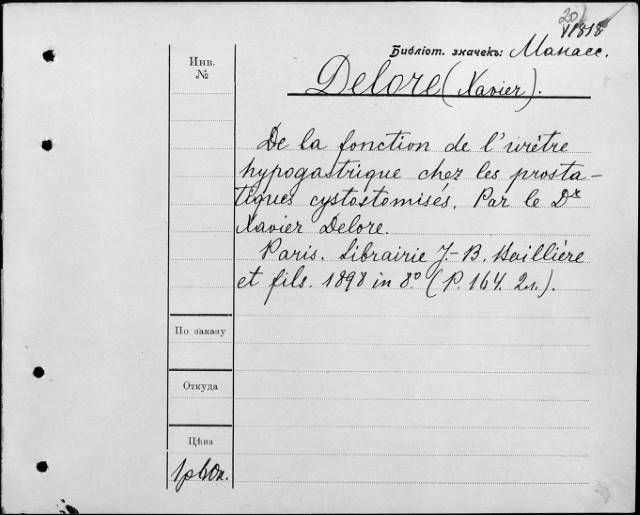 20
VI 818
Библіот. значекъ: Манасс.
Инв.
№
Delore (Xavier).
De la fonction de l'urètre
hypogastrique chez les prosta-
tiques cystostomisés. Par le Dr
Xavier Delore.
Paris. Librairie J.-B. Baillière
et fils. 1898 in 8.° (P. 164. 2л.).
По заказу
Откуда
Цѣна
1р60к.